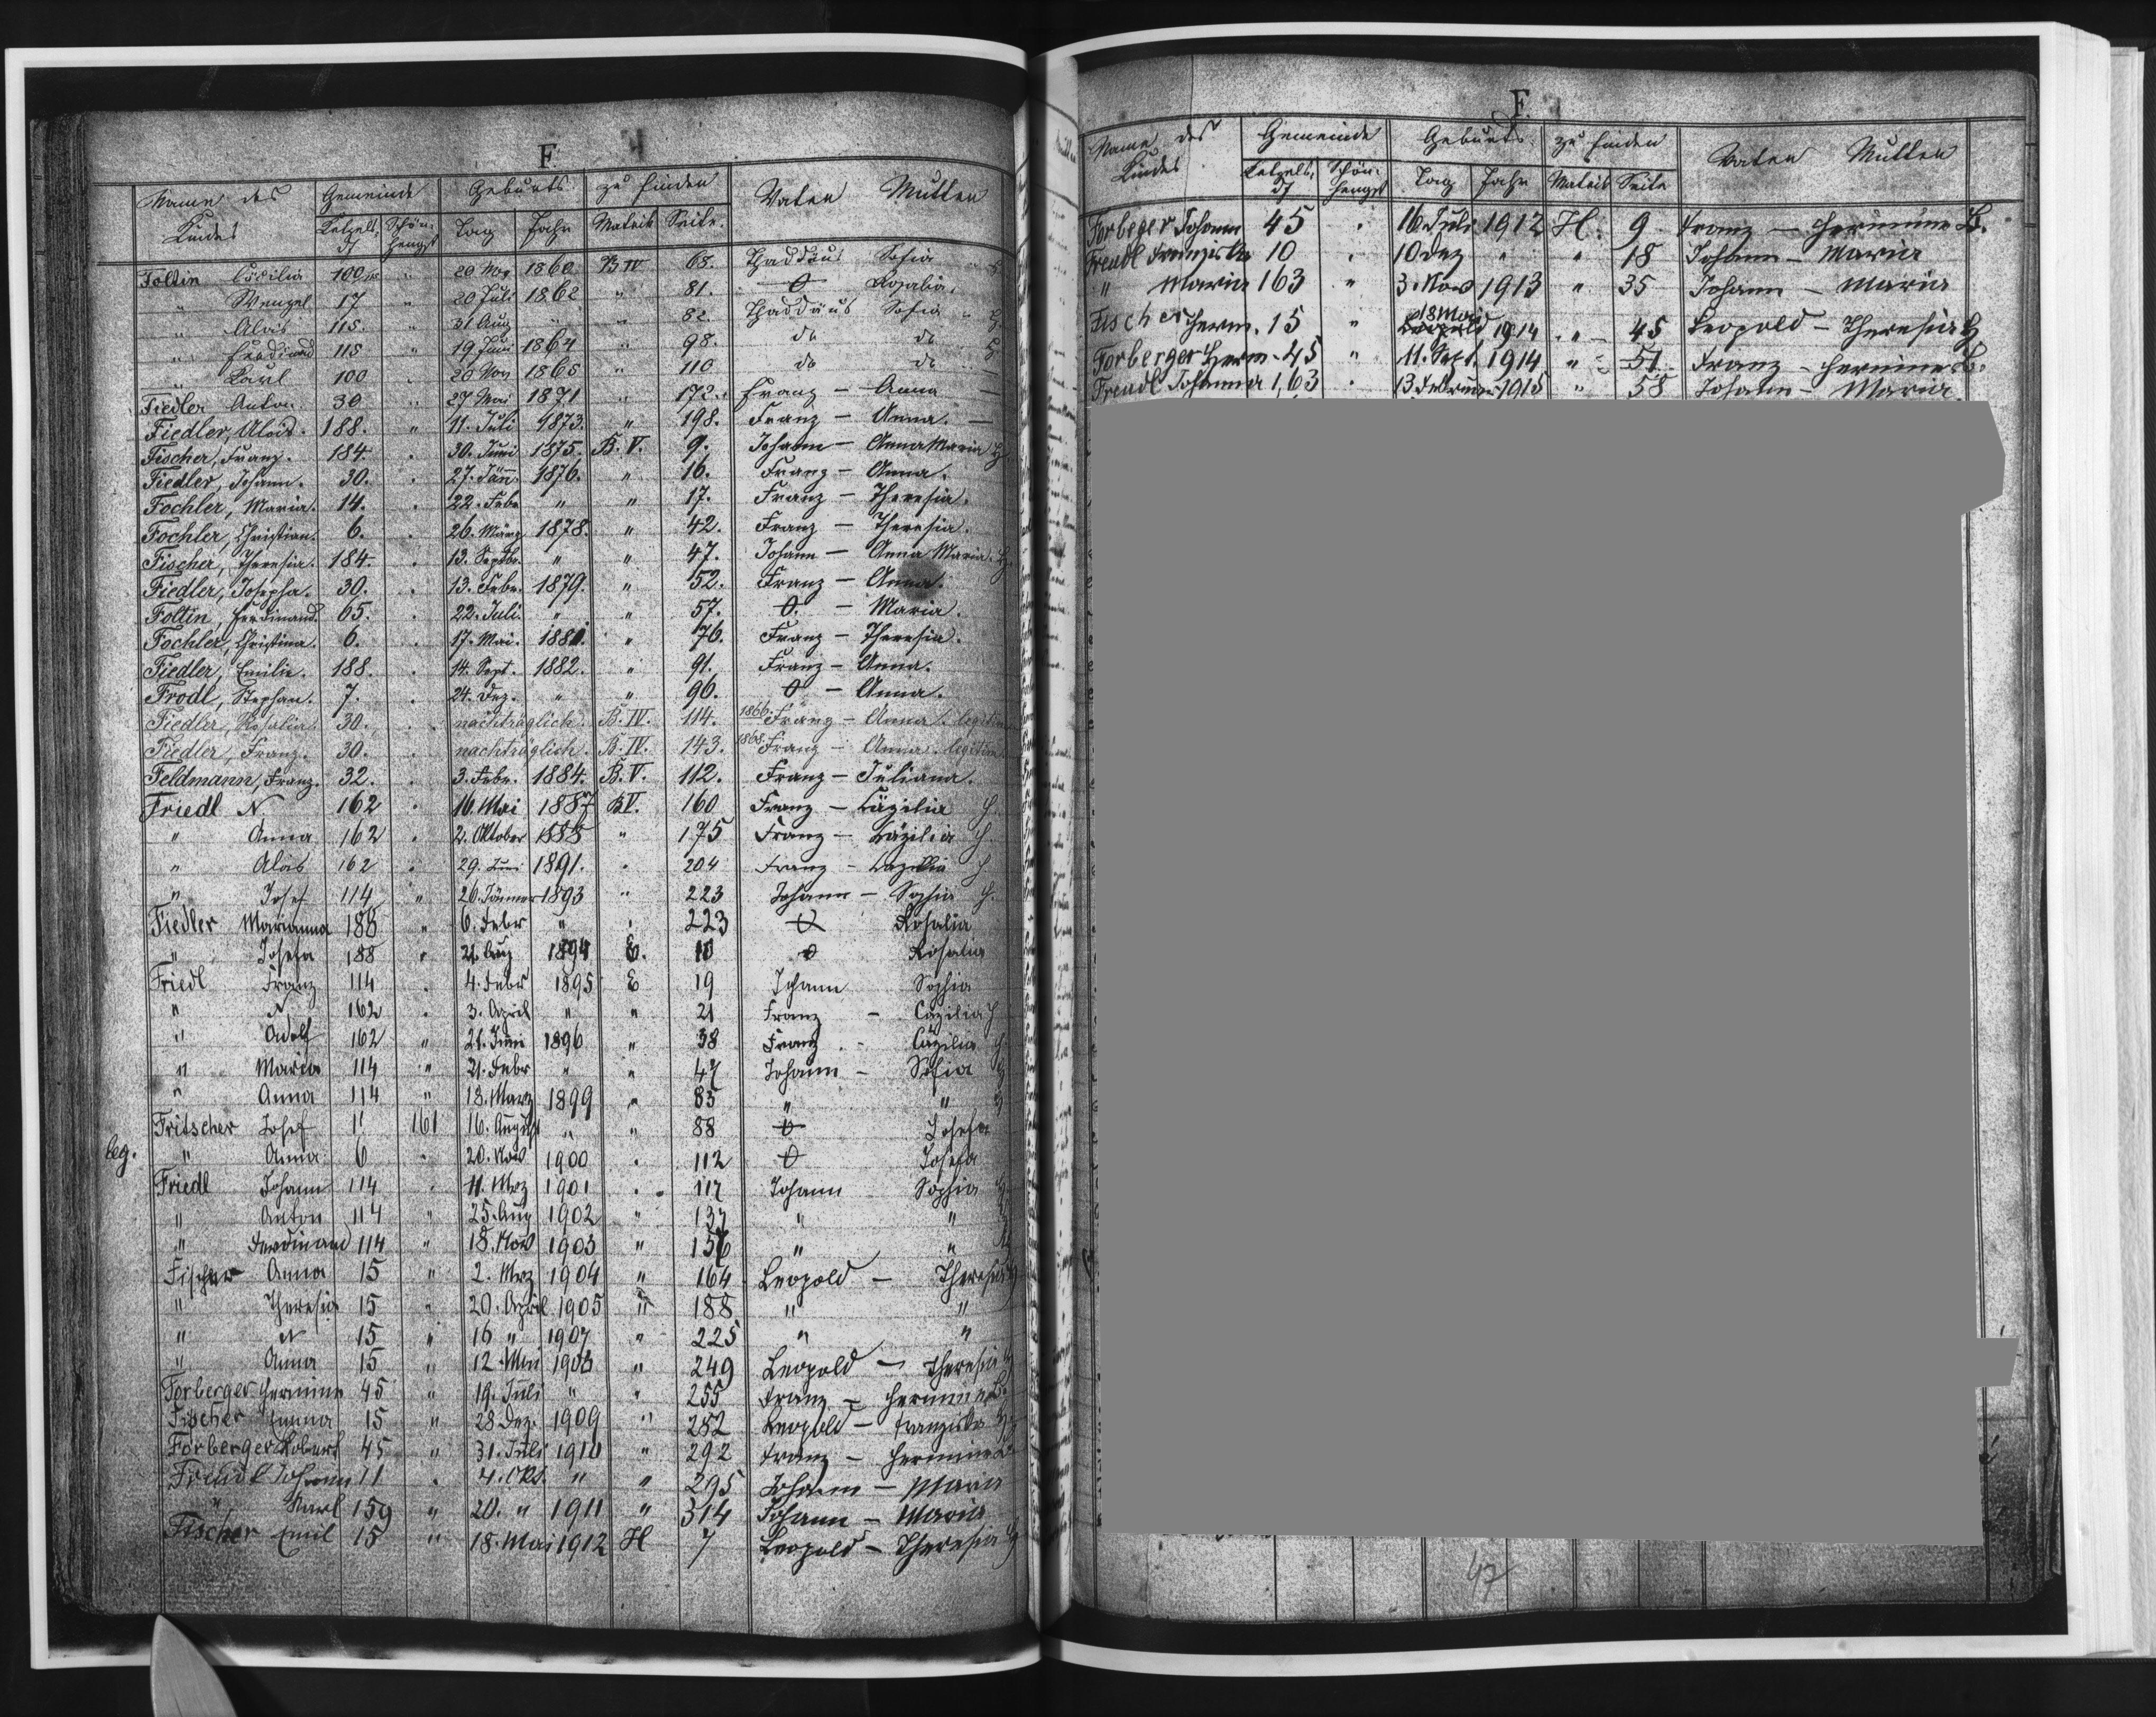 F.
Name des Kindes Gemeinde Geburts zu finden Vater Mutter
Ketzelsdf Schönhengst Tag Jahr Matrik Seite.
Foltin Cäcilia 100 " 20 Nov 1860 B IV 68. Thaddäus Sofia
" Wenzel 17 " 20 Juli 1862 " 81. O Rosalia.
" Alois 115. " 31 Aug " " 82. Thaddäus Sofia
" Ferdinand 115 " 19 Juni 1864 " 98. do do
" Karl 100 " 20 Nov 1865 " 110 do do
Fiedler Anton. 30. " 27 Mai 1871 " 172. Franz - Anna
Fiedler, Alois. 188. " 11. Juli 1873. " 198. Franz - Anna.
Fischer, Franz. 184. . 30. Juni 1875. B. V. 9. Johann - Anna Maria
Fiedler, Johann. 30. . 27. Jän. 1876. " 16. Franz - Anna.
Fochler, Maria. 14. . 22. Febr. " " 17. Franz - Theresia.
Fochler, Christian. 6. . 26. März 1878. " 42. Franz - Theresia.
Fischer, Theresia. 184. . 13. Septbr. " " 47. Johann - Anna Maria.
Fiedler, Josepha. 30. . 13. Febr. 1879. " 52. Franz - Anna.
Foltin, Ferdinand. 65. . 22. Juli. " " 57. O. - Maria.
Fochler, Christina. 6. . 17. Mai. 1881. " 76. Franz - Theresia.
Fiedler, Emilie. 188. . 14. Sept. 1882. " 91. Franz - Anna.
Frodl, Stephan. 7. . 24. Dez. " " 96. O - Anna.
Fiedler, Rosalia. 30. . nachträglich. B. IV. 114. 1866. Franz - Anna. legitim
Fiedler, Franz. 30. . nachträglich. B. IV. 143. 1868. Franz - Anna. legitim
Feldmann, Franz. 32. . 3. Febr. 1884. B. V. 112. Franz - Juliana.
Friedl N 162 . 16. Mai 1887 B V. 160 Franz - Cäzilia H
" Anna 162 . 2. Oktober 1888 " 175 Franz - Cäzilia H
" Alois 162 . 29. Juni 1891. " 204 Franz - Cäzilia H
" Josef 114 " 26. Jänner 1893 " 223 Johann - Sophia H.
Fiedler Marianna 188 " 6. Febr " " 223 O Rosalia
" Josefa 188 " 21. Aug 1894 E. 10 O Rosalia
Friedl Franz 114 . 4. Febr 1895 E 19 Johann Sophia
" N 162 . 3. April " " 21 Franz - Cäzilia H
" Adolf 162 " 21. Juni 1896 " 38 Franz - Cäzilia H
" Maria 114 " 21. Febr " " 47 Johann - Sofia H
" Anna 114 " 13. März 1899 " 83 " "
Fritscher Josef 161 16. August " " 88 O Josefa
leg. " Anna 6 " 20. Nov 1900 " 112 O Josefa
Friedl Johann 114 . 11. Mrz 1901 " 117 Johann Sophia
" Anton 114 " 25. Aug 1902 " 137 " "
" Ferdinand 114 " 18. Nov 1903 " 156 " "
Fischer Anna 15 " 2. Mrz 1904 " 164 Leopold - Theresia H
" Theresia 15 " 20. April 1905 " 188 " "
" N 15 " 16 " 1907 " 225 " "
" Anna 15 " 12. Mai 1908 " 249 Leopold - Theresia H
Forberger Hermine 45 " 19. Juli " " 255 Franz - Hermine B.
Fischer Emma 15 " 28. Dez. 1909 " 282 Leopold - Franziska H
Forberger Robert 45 " 31. Juli 1910 " 292 Franz - Hermine B.
Freudl Johann 11 . 4. Okt. " " 295 Johann - Maria
" Karl 159 " 20. " 1911 " 314 Johann - Maria
Fischer Emil 15 " 18. Mai 1912 H 7 Leopold - Theresia H
F.
Name des Kindes Gemeinde Geburts zu finden Vater Mutter
Ketzelsdf Schönhengst Tag Jahr Matrik Seite
Forberger Johann 45 " 16. Juli 1912 H. 9 Franz - Hermine B.
Freudl Franziska 10 " 10 Dez " " 18 Johann - Maria
" Maria 163 " 3. Nov 1913 " 35 Johann - Maria
Fischer Herm. 15 " 18 Mai 1914 " 45 Leopold - Theresia H
Forberger Herm. 45 " 11. Sept. 1914 " 51 Franz - Hermine B.
Freudl Johanna 163 . 13 Februar 1915 " 58 Johann - Maria
47